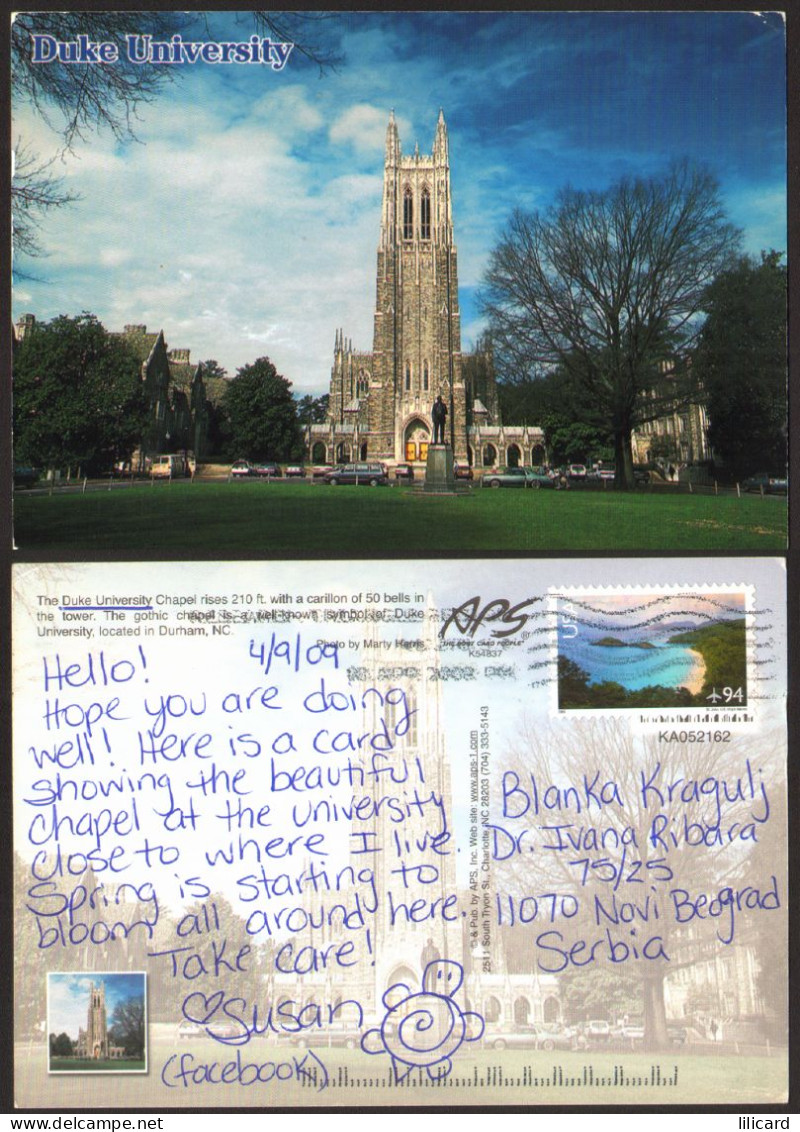 Duke University
The Duke University Chapel rises 210 ft. with a carillon of 50 bells in
the tower. The gothic chapel is a well-known symbol of Duke
University, located in Durham, NC.
Photo by Marty Harris
APS
"THE POST CARD PEOPLE"
K54837
USA
94
KA052162
© & Pub. by APS, Inc. Web site: www.aps-1.com
2511 South Tryon St., Charlotte, NC 28203 (704) 333-5143
4/9/09
Hello!
Hope you are doing
well! Here is a card
showing the beautiful
chapel at the university
close to where I live.
Spring is starting to
bloom all around here.
Take care!
Susan
(facebook)
Blanka Kragulj
Dr. Ivana Ribara
75/25
11070 Novi Beograd
Serbia
lilicard